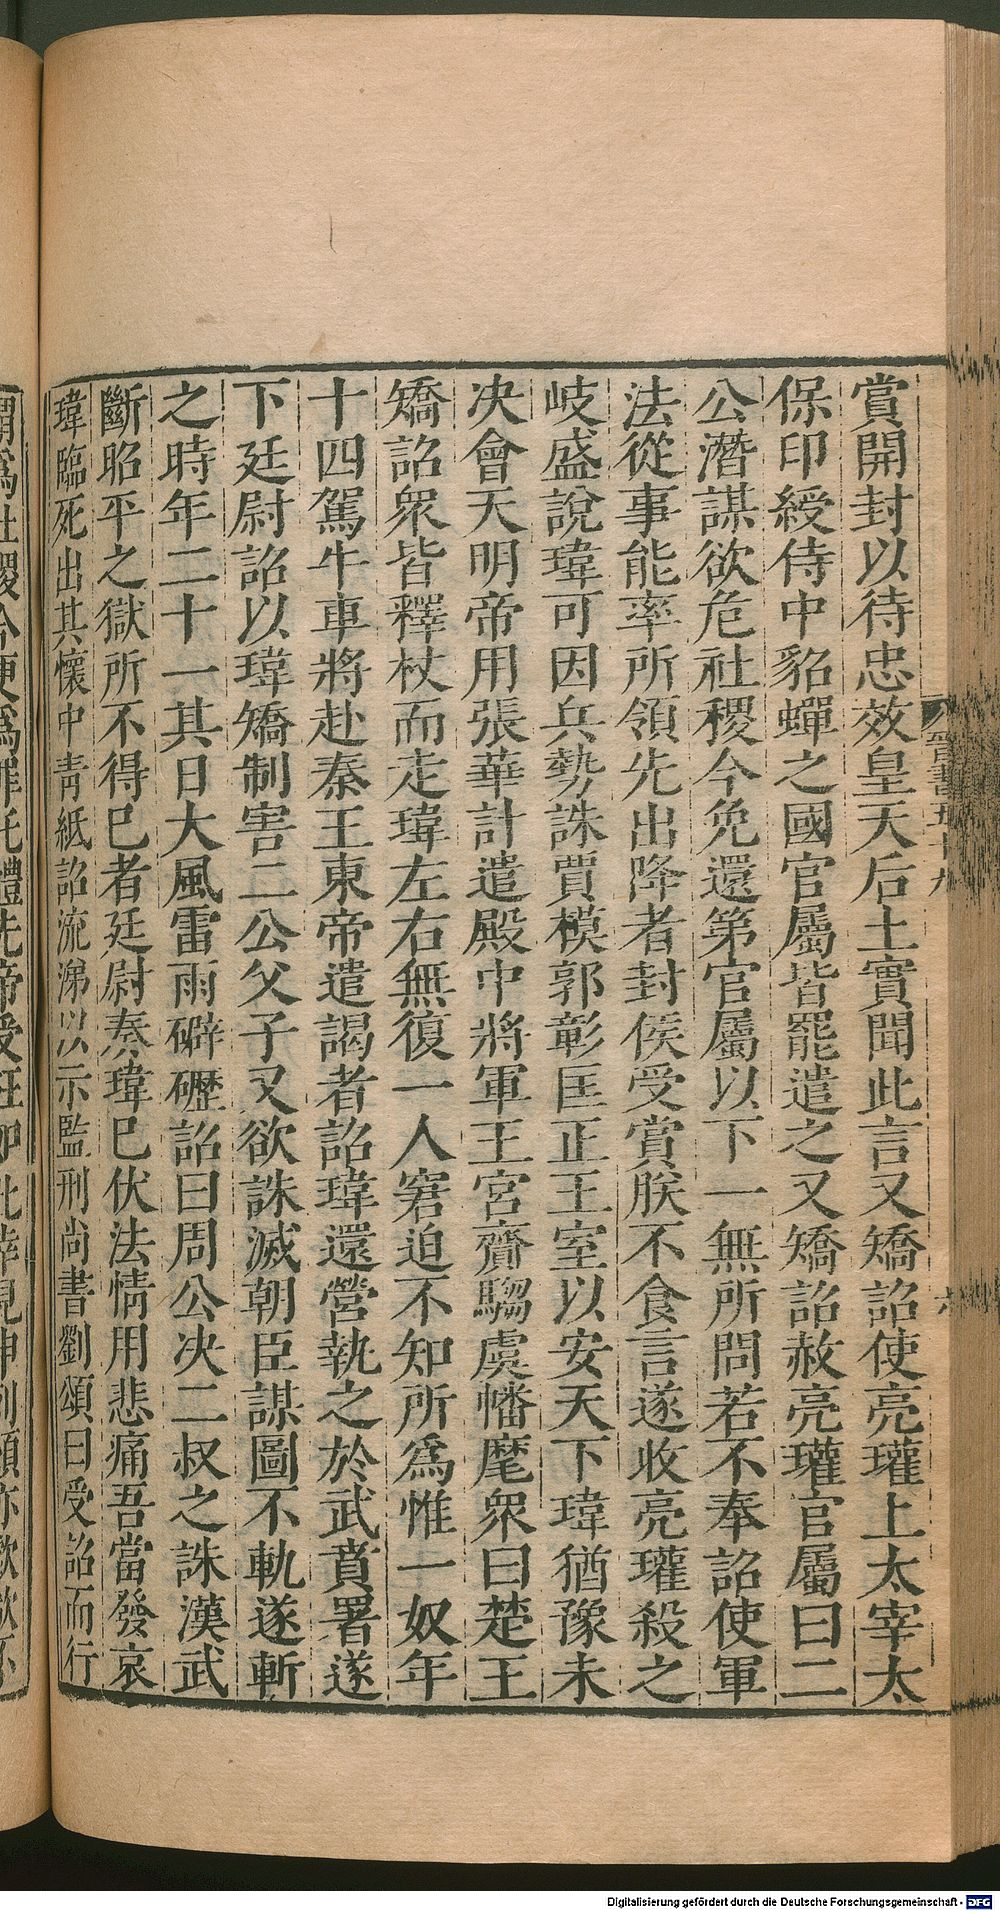 賞開封以待忠效皇天后土實聞此言又矯詔使亮瓘上太宰太
保印綬侍中貂蟬之國官屬皆罷遣之又矯詔赦亮瓘官屬曰二
公潛謀欲危社稷今免還第官屬以下一無所問若不奉詔使軍
法從事能率所領先出降者封侯受賞朕不食言遂收亮瓘殺之
岐盛說瑋可因兵勢誅賈模郭彰匡正王室以安天下瑋猶豫未
决會天明帝用張華計遣殿中將軍王宮齎騶虞幡麾衆曰楚王
矯詔衆皆釋杖而走瑋左右無復一人窘迫不知所爲惟一奴年
十四駕牛車將赴秦王東帝遣謁者詔瑋還營執之於武賁署遂
下廷尉詔以瑋矯制害二公父子又欲誅滅朝臣謀圖不軌遂斬
之時年二十一其日大風雷雨礔礰詔曰周公决二叔之誅漢武
斷昭平之獄所不得已者廷尉奏瑋已伏法情用悲痛吾當發哀
瑋臨死出其懷中青紙詔流涕以示監刑尚書劉頌曰受詔而行
謂爲社稷今更爲罪託體先帝受枉如此幸見申列頌亦歔欷不
晉書五十九
六
Digitalisierung gefördert durch die Deutsche Forschungsgemeinschaft - DFG